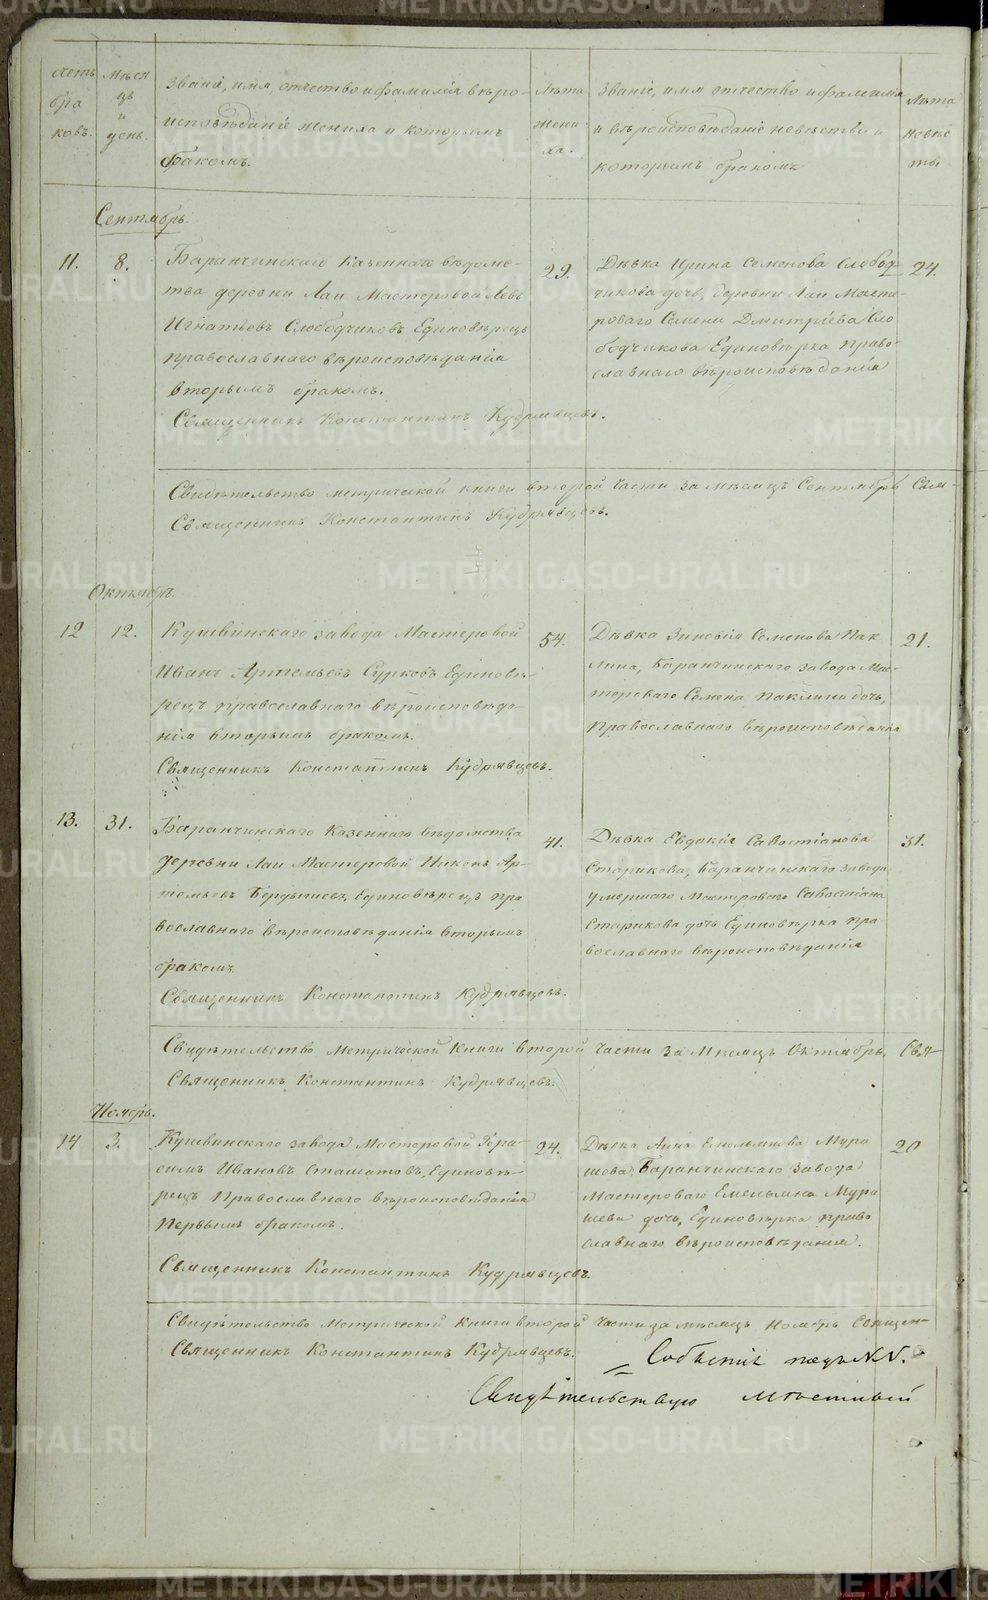 METRIKI.GASO-URAL.RU
Счетъ браковъ.
Мѣсяцъ и день.
Званіе, имя, отчество и фамилія вѣро-
исповѣданіе жениха и которымъ
бракомъ.
Лѣта жениха.
Званіе, имя отчество и фамилія
и вѣроисповѣданіе невѣсты и
которымъ бракомъ
Лѣта невѣсты
Сентябрь.
11.
8.
Баранчинскаго Казеннаго вѣдомс-
тва деревни Лаи Мастеровой Левъ
Игнатьевъ Слободчиковъ Единовѣрецъ
православнаго вѣроисповѣданія
вторымъ бракомъ.
Священникъ Константинъ Кудрявцевъ.
29.
Дѣвка Ирина Семенова Слобод-
чикова дочь, деревни Лаи Масте-
роваго Семена Дмитріева Сло
бодчикова Единовѣрка право-
славнаго вѣроисповѣданія
24.
Свидѣтельство метрической книги второй части за мѣсяцъ Сентябрь Свя-
Священникъ Константинъ Кудрявцевъ.
Октябрь
12
12.
Кушвинскаго завода Мастеровой
Иванъ Артемьевъ Сурковъ Единовѣ-
рецъ православнаго вѣроисповѣда-
нія вторымъ бракомъ.
Священникъ Константинъ Кудрявцевъ.
54.
Дѣвка Зиновія Семенова Пак
лина, Баранчинскаго завода Мас-
тероваго Семена Паклина дочь,
православнаго вѣроисповѣданія
21.
13.
31.
Баранчинскаго Казеннаго вѣдомства
деревни Лаи Мастеровой Никонъ Ар-
темьевъ Бердышевъ, Единовѣрецъ пра
вославнаго вѣроисповѣданія вторымъ
бракомъ.
Священникъ Константинъ Кудрявцевъ.
41.
Дѣвка Евдокія Савостіанова
Старикова, Баранчинскаго завода
умершаго Мастероваго Савостіана
Старикова дочь Единовѣрка пра
вославнаго вѣроисповѣданія
31.
Свидѣтельство Метрической Книги второй части за Мѣсяцъ Октябрь, Свя-
Священникъ Константинъ Кудрявцевъ.
Ноябрь.
14
3.
Кушвинскаго завода Мастеровой Гера-
симъ Ивановъ Единовѣ-
рецъ Православнаго вѣроисповѣданія
первымъ бракомъ.
Священникъ Константинъ Кудрявцевъ.
24.
Дѣвка Анна Емельянова Мура
шева, Баранчинскаго завода
Мастероваго Емельяна Мура
шева дочь, Единовѣрка право
славнаго вѣроисповѣданія.
20
Свидѣтельство Метрической Книги второй части за мѣсяцъ Ноябрь Священ-
Священникъ Константинъ Кудрявцевъ.
Событіе подъ №№.
Свидѣтельствую мѣстный